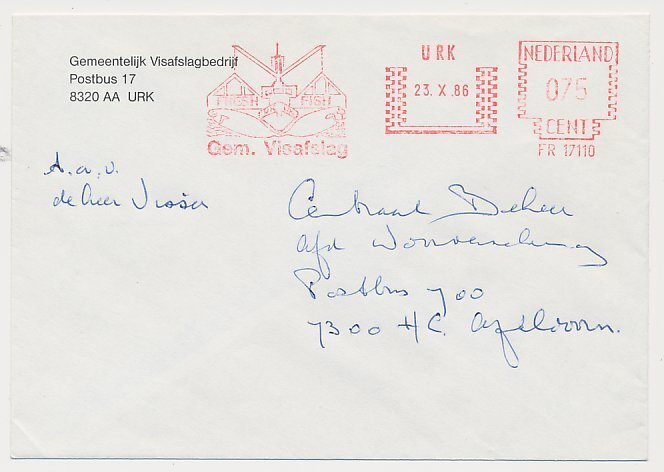 Gemeentelijk Visafslagbedrijf
Postbus 17
8320 AA URK
FRESH FISH
Gem. Visafslag
URK
23. X .86
NEDERLAND
075
CENT
FR 17110
A.a.v.
de heer Visser
Centraal Beheer
afd
Postbus 700
7300 HC Apeldoorn.